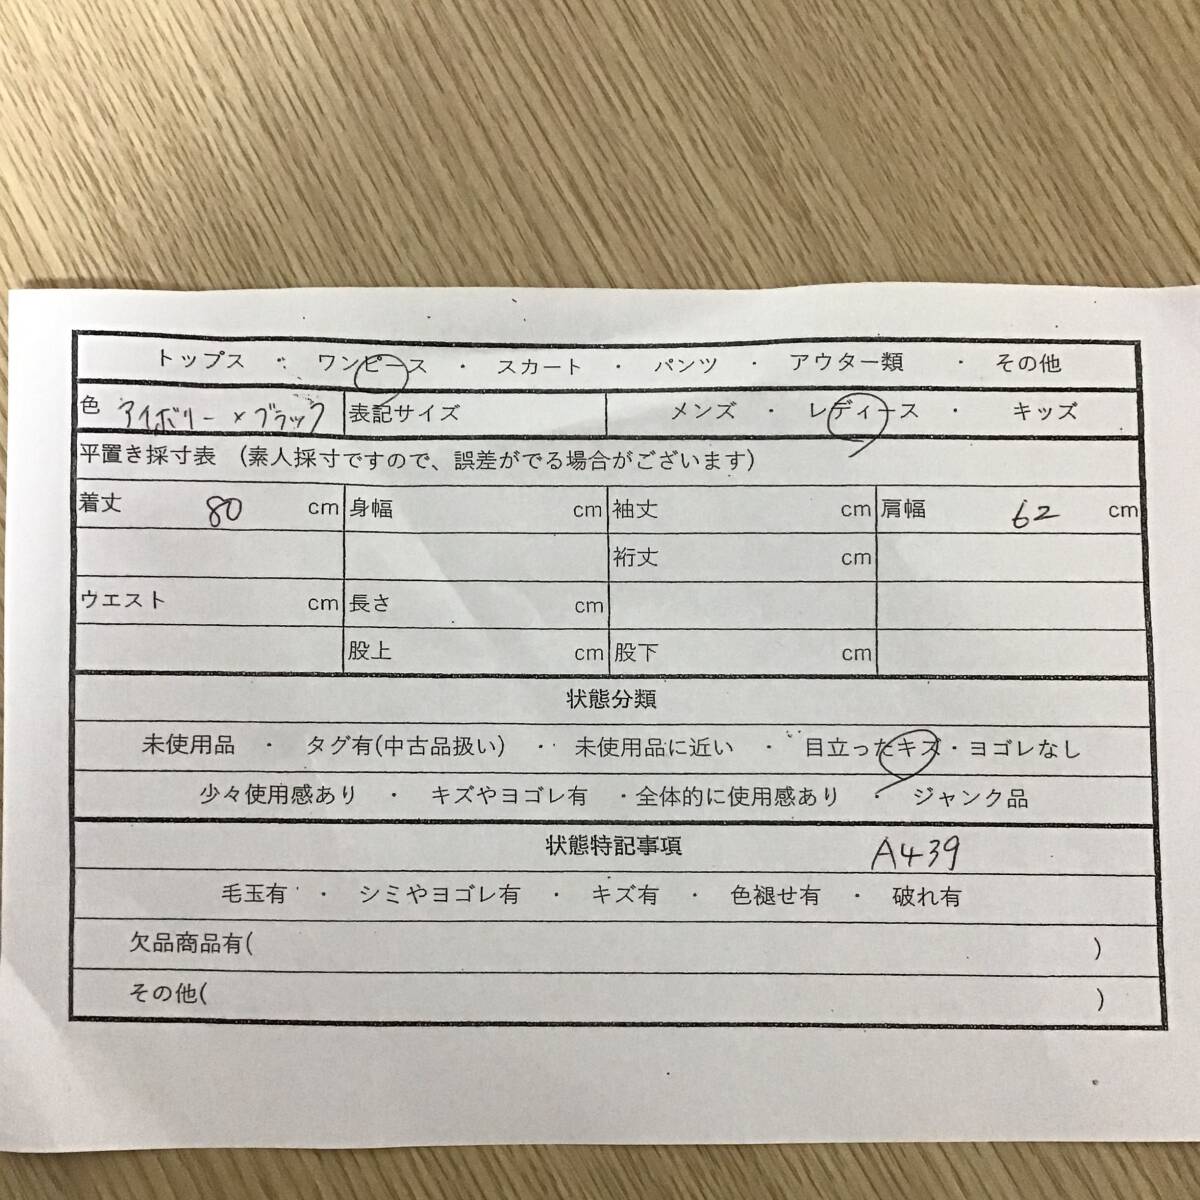 トップス ・ ワンピース ・ スカート ・ パンツ ・ アウター類 ・ その他
色 アイボリー×ブラック 表記サイズ メンズ ・ レディース ・ キッズ
平置き採寸表 (素人採寸ですので、誤差がでる場合がございます)
着丈 80 cm 身幅 cm 袖丈 cm 肩幅 62 cm
裄丈 cm
ウエスト cm 長さ cm
股上 cm 股下 cm
状態分類
未使用品 ・ タグ有(中古品扱い) ・ 未使用品に近い ・ 目立ったキズ・ヨゴレなし
少々使用感あり ・ キズやヨゴレ有 ・全体的に使用感あり ・ ジャンク品
状態特記事項 A439
毛玉有 ・ シミやヨゴレ有 ・ キズ有 ・ 色褪せ有 ・ 破れ有
欠品商品有( )
その他( )